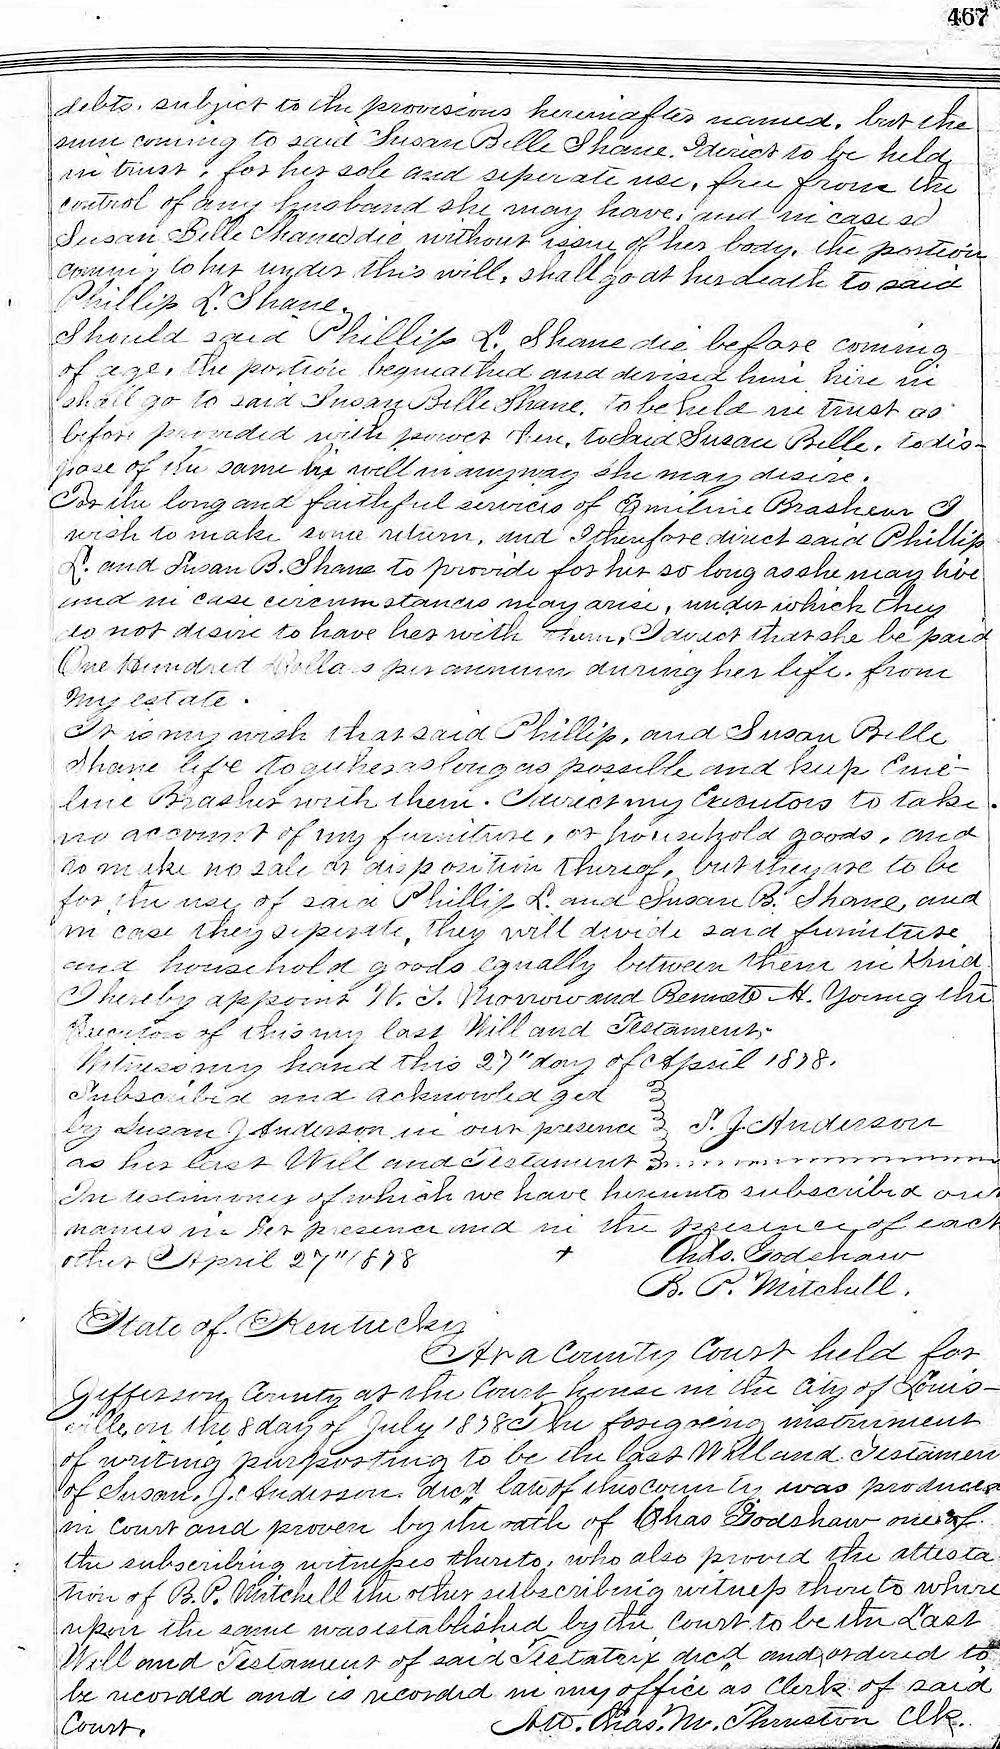 467
debts. subject to the provisions hereinafter named. but the
sum coming to said Susan Belle Shane. I direct to be held
in trust, for her sole and seperate use, free from the
control of any husband she may have, and in case sd
Susan Belle Shane die without issue of her body, the portion
coming to her under this will, shall go at her death to said
Phillip L. Shane.
Should said Phillip L. Shane die before coming
of age, the portion bequeathed and devised him here in
shall go to said Susan Belle Shane, to be held in trust as
before provided with power then, to said Susan Belle, to dis-
pose of the same by will in any way she may desire.
For the long and faithful services of Emiline Brashear I
wish to make some return, and I therefore direct said Phillip
L. and Susan B. Shane to provide for her so long as she may live
and in case circumstances may arise, under which they
do not desire to have her with them, I direct that she be paid
One Hundred Dollars per annum during her life. from
my estate.
It is my wish that said Phillip, and Susan Belle
Shane life together as long as possible and keep Eme-
line Brasher with them. I direct my Executors to take
no account of my furniture, or household goods, and
to make no sale or disposition thereof, but they are to be
for the use of said Phillip L. and Susan B. Shane, and
in case they seperate, they will divide said furniture
and household goods equally between them in Kind
I hereby appoint W. S. Morrow and Bennett H. Young the
Executors of this my last Will and Testament.
Witness my hand this 27" day of April 1878.
Subscribed and acknowledged
by Susan J Anderson in our presence S. J. Anderson
as her last Will and Testament
In testimony of which we have hereunto subscribed our
names in her presence and in the presence of each
other April 27" 1878 + Chas. Godshaw
B. P. Mitchell.
State of Kentucky
At a County Court held for
Jefferson County at the Court house in the City of Louis-
ville, on the 8 day of July 1878 The foregoing instrument
of writing purporting to be the last Will and Testamen
of Susan. J. Anderson. decd late of this county was produced
in Court and proven by the oath of Chas Godshaw one of
the subscribing witnesses thereto, who also proved the attesta
tion of B. P. Mitchell the other subscribing witness thereto where
upon the same was established by the Court to be the Last
Will and Testament of said Testatrix decd and ordered to
be recorded and is recorded in my office as Clerk of said
Court. Att. Chas. M. Thruston Clk.